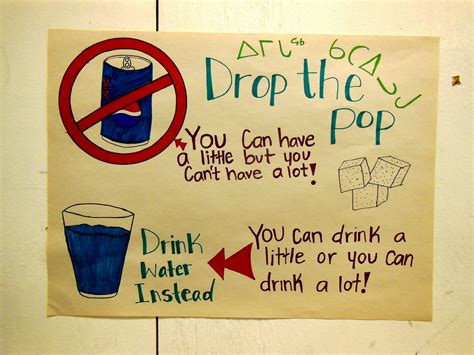 Drop the
pop
You Can have
a little but you
Can't have a lot!
Drink
Water
Instead
You Can drink a
little or you can
drink a lot!